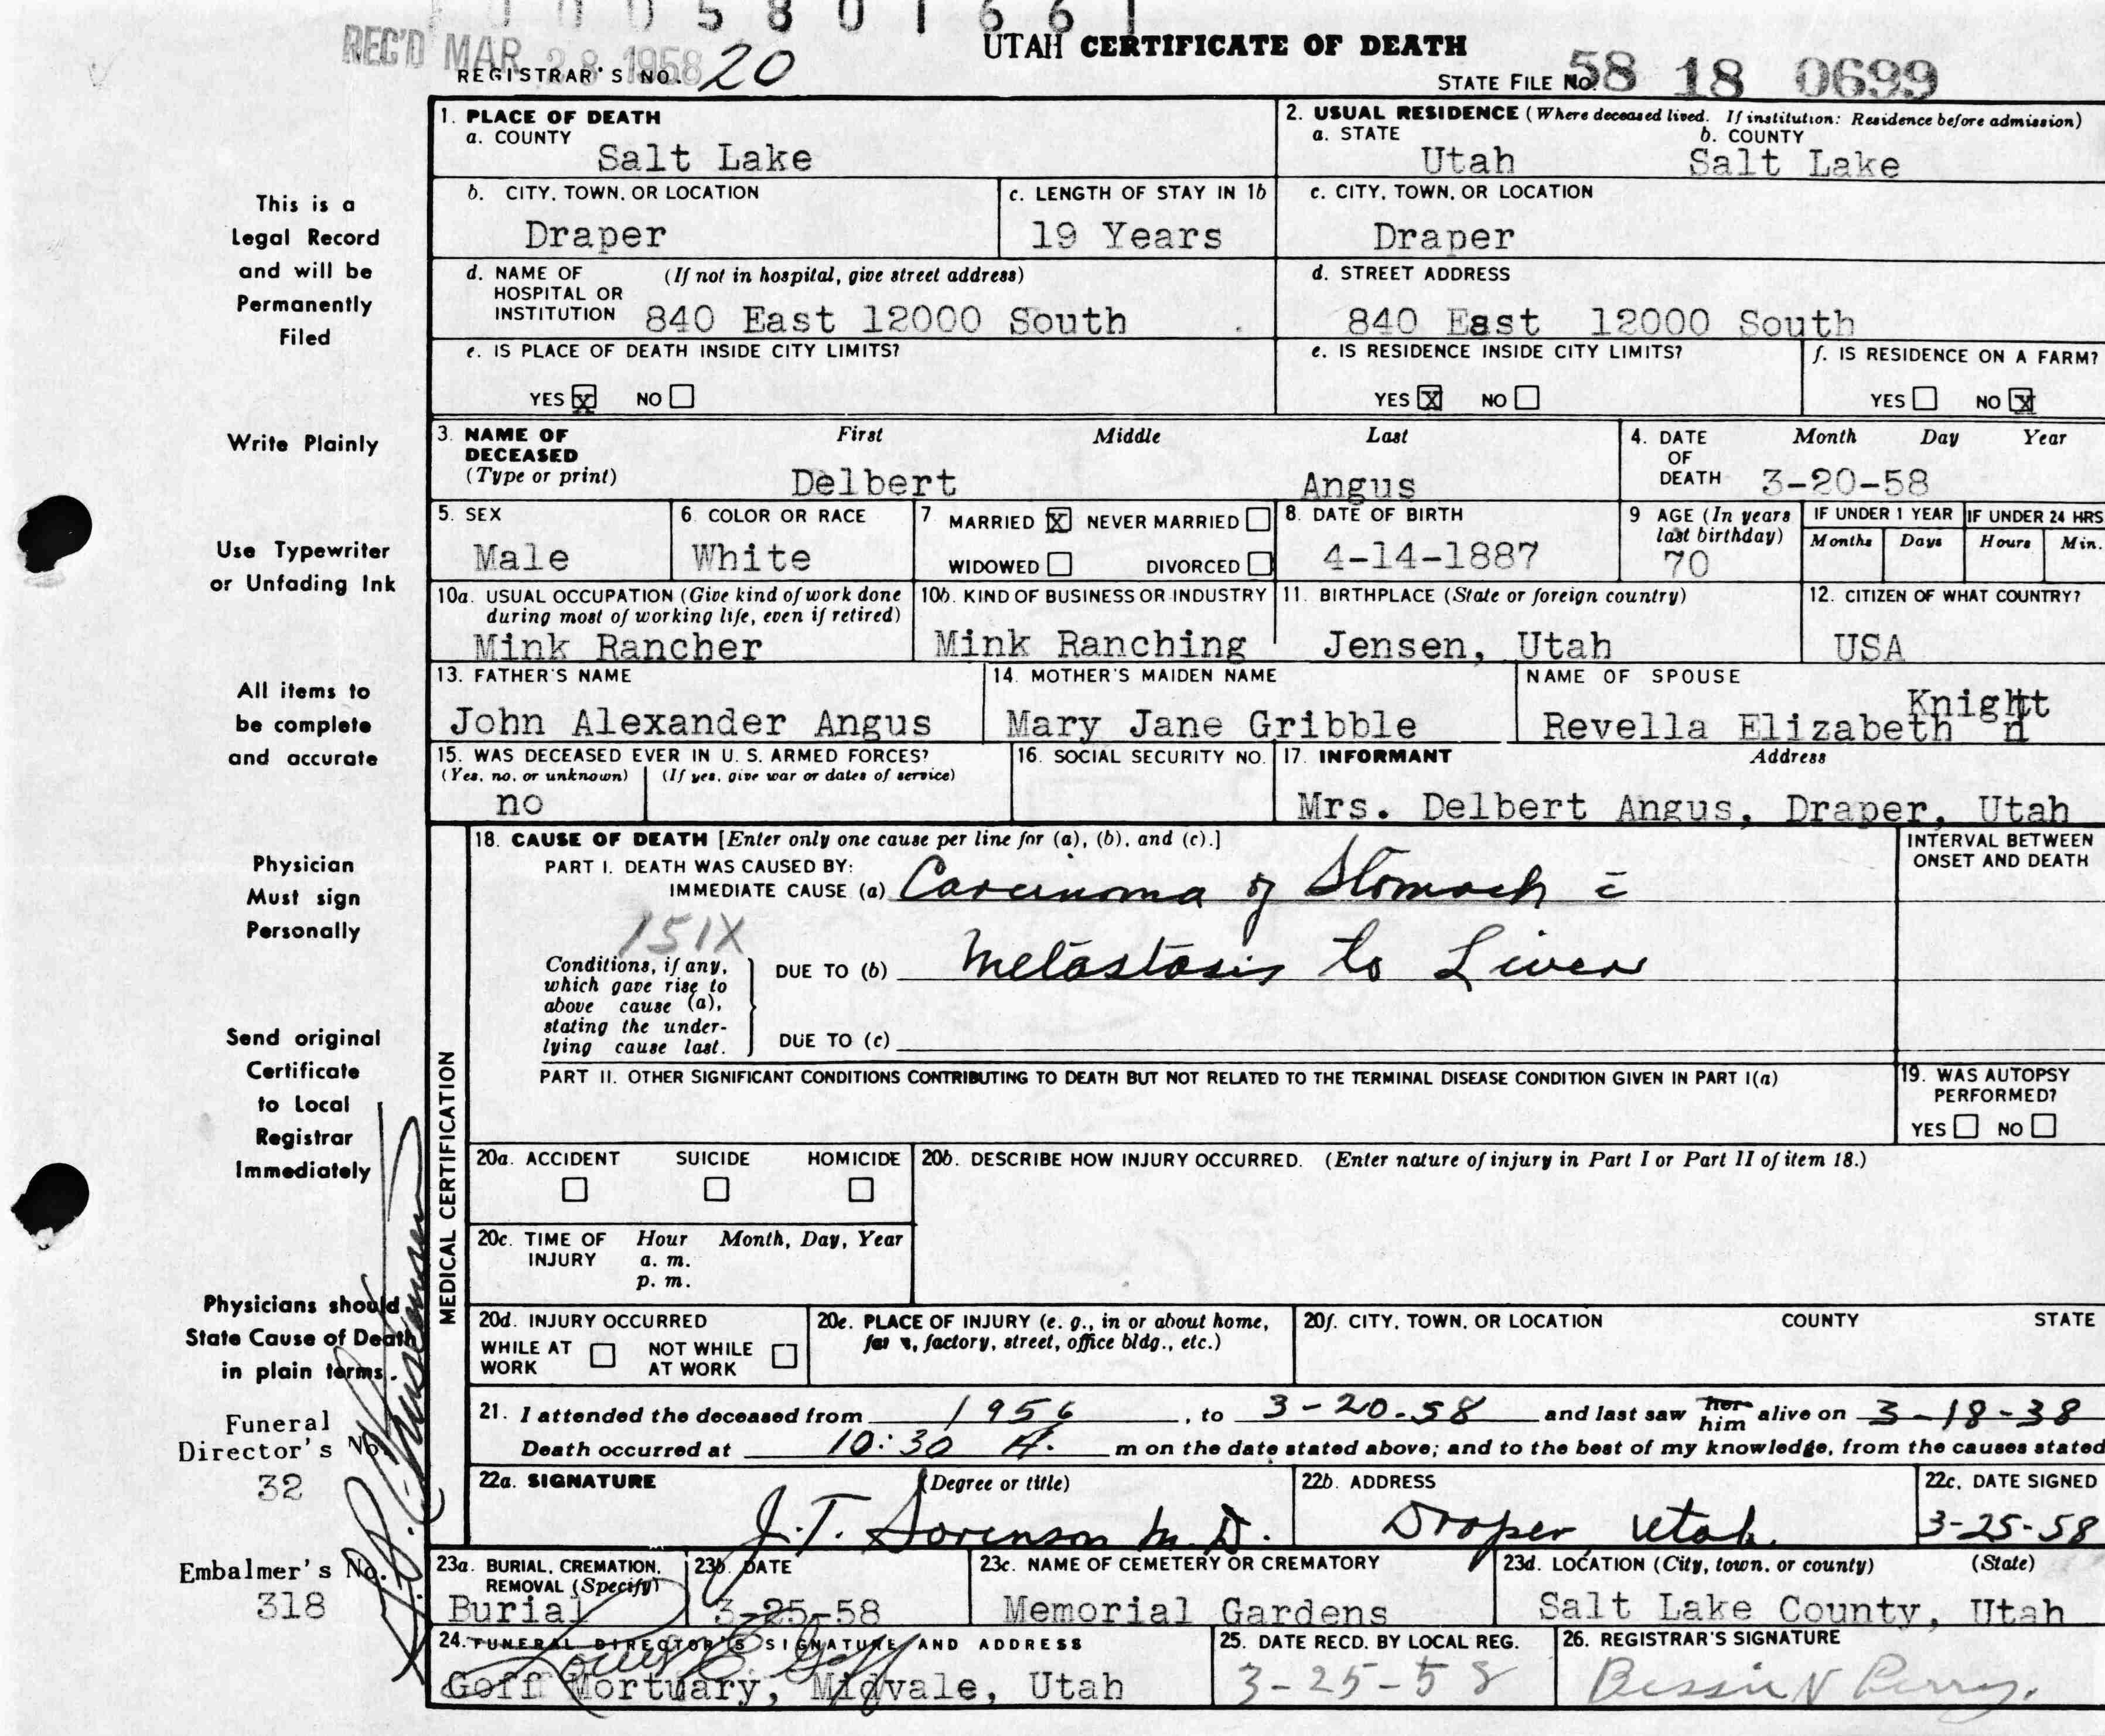 0 0 0 5 8 0 1 6 6 1
REC'D MAR 28 1958
UTAH CERTIFICATE OF DEATH
REGISTRAR'S NO. 20
STATE FILE No. 58 18 0699
This is a
Legal Record
and will be
Permanently
Filed
Write Plainly
Use Typewriter
or Unfading Ink
All items to
be complete
and accurate
Physician
Must sign
Personally
Send original
Certificate
to Local
Registrar
Immediately
Physicians should
State Cause of Death
in plain terms.
Funeral
Director's No.
32
Embalmer's No.
318
1. PLACE OF DEATH
a. COUNTY
Salt Lake
2. USUAL RESIDENCE (Where deceased lived. If institution: Residence before admission)
a. STATE b. COUNTY
Utah Salt Lake
b. CITY, TOWN, OR LOCATION
Draper
c. LENGTH OF STAY IN 1b
19 Years
c. CITY, TOWN, OR LOCATION
Draper
d. NAME OF (If not in hospital, give street address)
HOSPITAL OR
INSTITUTION 840 East 12000 South
d. STREET ADDRESS
840 East 12000 South
e. IS PLACE OF DEATH INSIDE CITY LIMITS?
YES X NO
e. IS RESIDENCE INSIDE CITY LIMITS?
YES X NO
f. IS RESIDENCE ON A FARM?
YES NO X
3. NAME OF First Middle Last
DECEASED
(Type or print) Delbert Angus
4. DATE Month Day Year
OF
DEATH 3-20-58
5. SEX
Male
6. COLOR OR RACE
White
7 MARRIED X NEVER MARRIED
WIDOWED DIVORCED
8. DATE OF BIRTH
4-14-1887
9 AGE (In years
last birthday)
70
IF UNDER 1 YEAR IF UNDER 24 HRS
Months Days Hours Min.
10a. USUAL OCCUPATION (Give kind of work done
during most of working life, even if retired)
Mink Rancher
10b. KIND OF BUSINESS OR INDUSTRY
Mink Ranching
11. BIRTHPLACE (State or foreign country)
Jensen, Utah
12. CITIZEN OF WHAT COUNTRY?
USA
13. FATHER'S NAME
John Alexander Angus
14. MOTHER'S MAIDEN NAME
Mary Jane Gribble
NAME OF SPOUSE
Knight
Revella Elizabeth
15. WAS DECEASED EVER IN U. S. ARMED FORCES?
(Yes, no, or unknown) (If yes, give war or dates of service)
no
16. SOCIAL SECURITY NO.
17. INFORMANT Address
Mrs. Delbert Angus, Draper, Utah
MEDICAL CERTIFICATION
18. CAUSE OF DEATH [Enter only one cause per line for (a), (b), and (c).]
INTERVAL BETWEEN
ONSET AND DEATH
PART I. DEATH WAS CAUSED BY:
IMMEDIATE CAUSE (a) Carcinoma of Stomach c̄
151X
Conditions, if any,
which gave rise to
above cause (a),
stating the under-
lying cause last.
DUE TO (b) Metastasis to Liver
DUE TO (c)
PART II. OTHER SIGNIFICANT CONDITIONS CONTRIBUTING TO DEATH BUT NOT RELATED TO THE TERMINAL DISEASE CONDITION GIVEN IN PART I(a)
19. WAS AUTOPSY
PERFORMED?
YES NO
20a. ACCIDENT SUICIDE HOMICIDE
20b. DESCRIBE HOW INJURY OCCURRED. (Enter nature of injury in Part I or Part II of item 18.)
20c. TIME OF Hour Month, Day, Year
INJURY a. m.
p. m.
20d. INJURY OCCURRED
WHILE AT NOT WHILE
WORK AT WORK
20e. PLACE OF INJURY (e. g., in or about home,
farm, factory, street, office bldg., etc.)
20f. CITY, TOWN, OR LOCATION COUNTY STATE
21. I attended the deceased from 1956, to 3-20-58 and last saw her him alive on 3-18-38
Death occurred at 10:30 A. m on the date stated above; and to the best of my knowledge, from the causes stated
22a. SIGNATURE (Degree or title)
J. T. Sorenson M. D.
22b. ADDRESS
Draper Utah.
22c. DATE SIGNED
3-25-58
23a. BURIAL, CREMATION,
REMOVAL (Specify)
Burial
23b. DATE
3-25-58
23c. NAME OF CEMETERY OR CREMATORY
Memorial Gardens
23d. LOCATION (City, town, or county) (State)
Salt Lake County, Utah
24. FUNERAL DIRECTOR'S SIGNATURE AND ADDRESS
Goff Mortuary, Midvale, Utah
25. DATE RECD. BY LOCAL REG.
3-25-58
26. REGISTRAR'S SIGNATURE
Bessie N Perry.